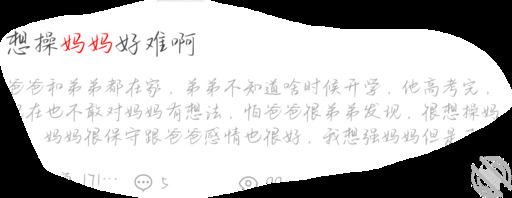 想操妈妈好难啊
爸爸和弟弟都在家，弟弟不知道啥时候开学，他高考完，
在也不敢对妈妈有想法，怕爸爸很弟弟发现，很想操妈
妈妈很保守跟爸爸感情也很好，我想强妈妈但是
171··· 5